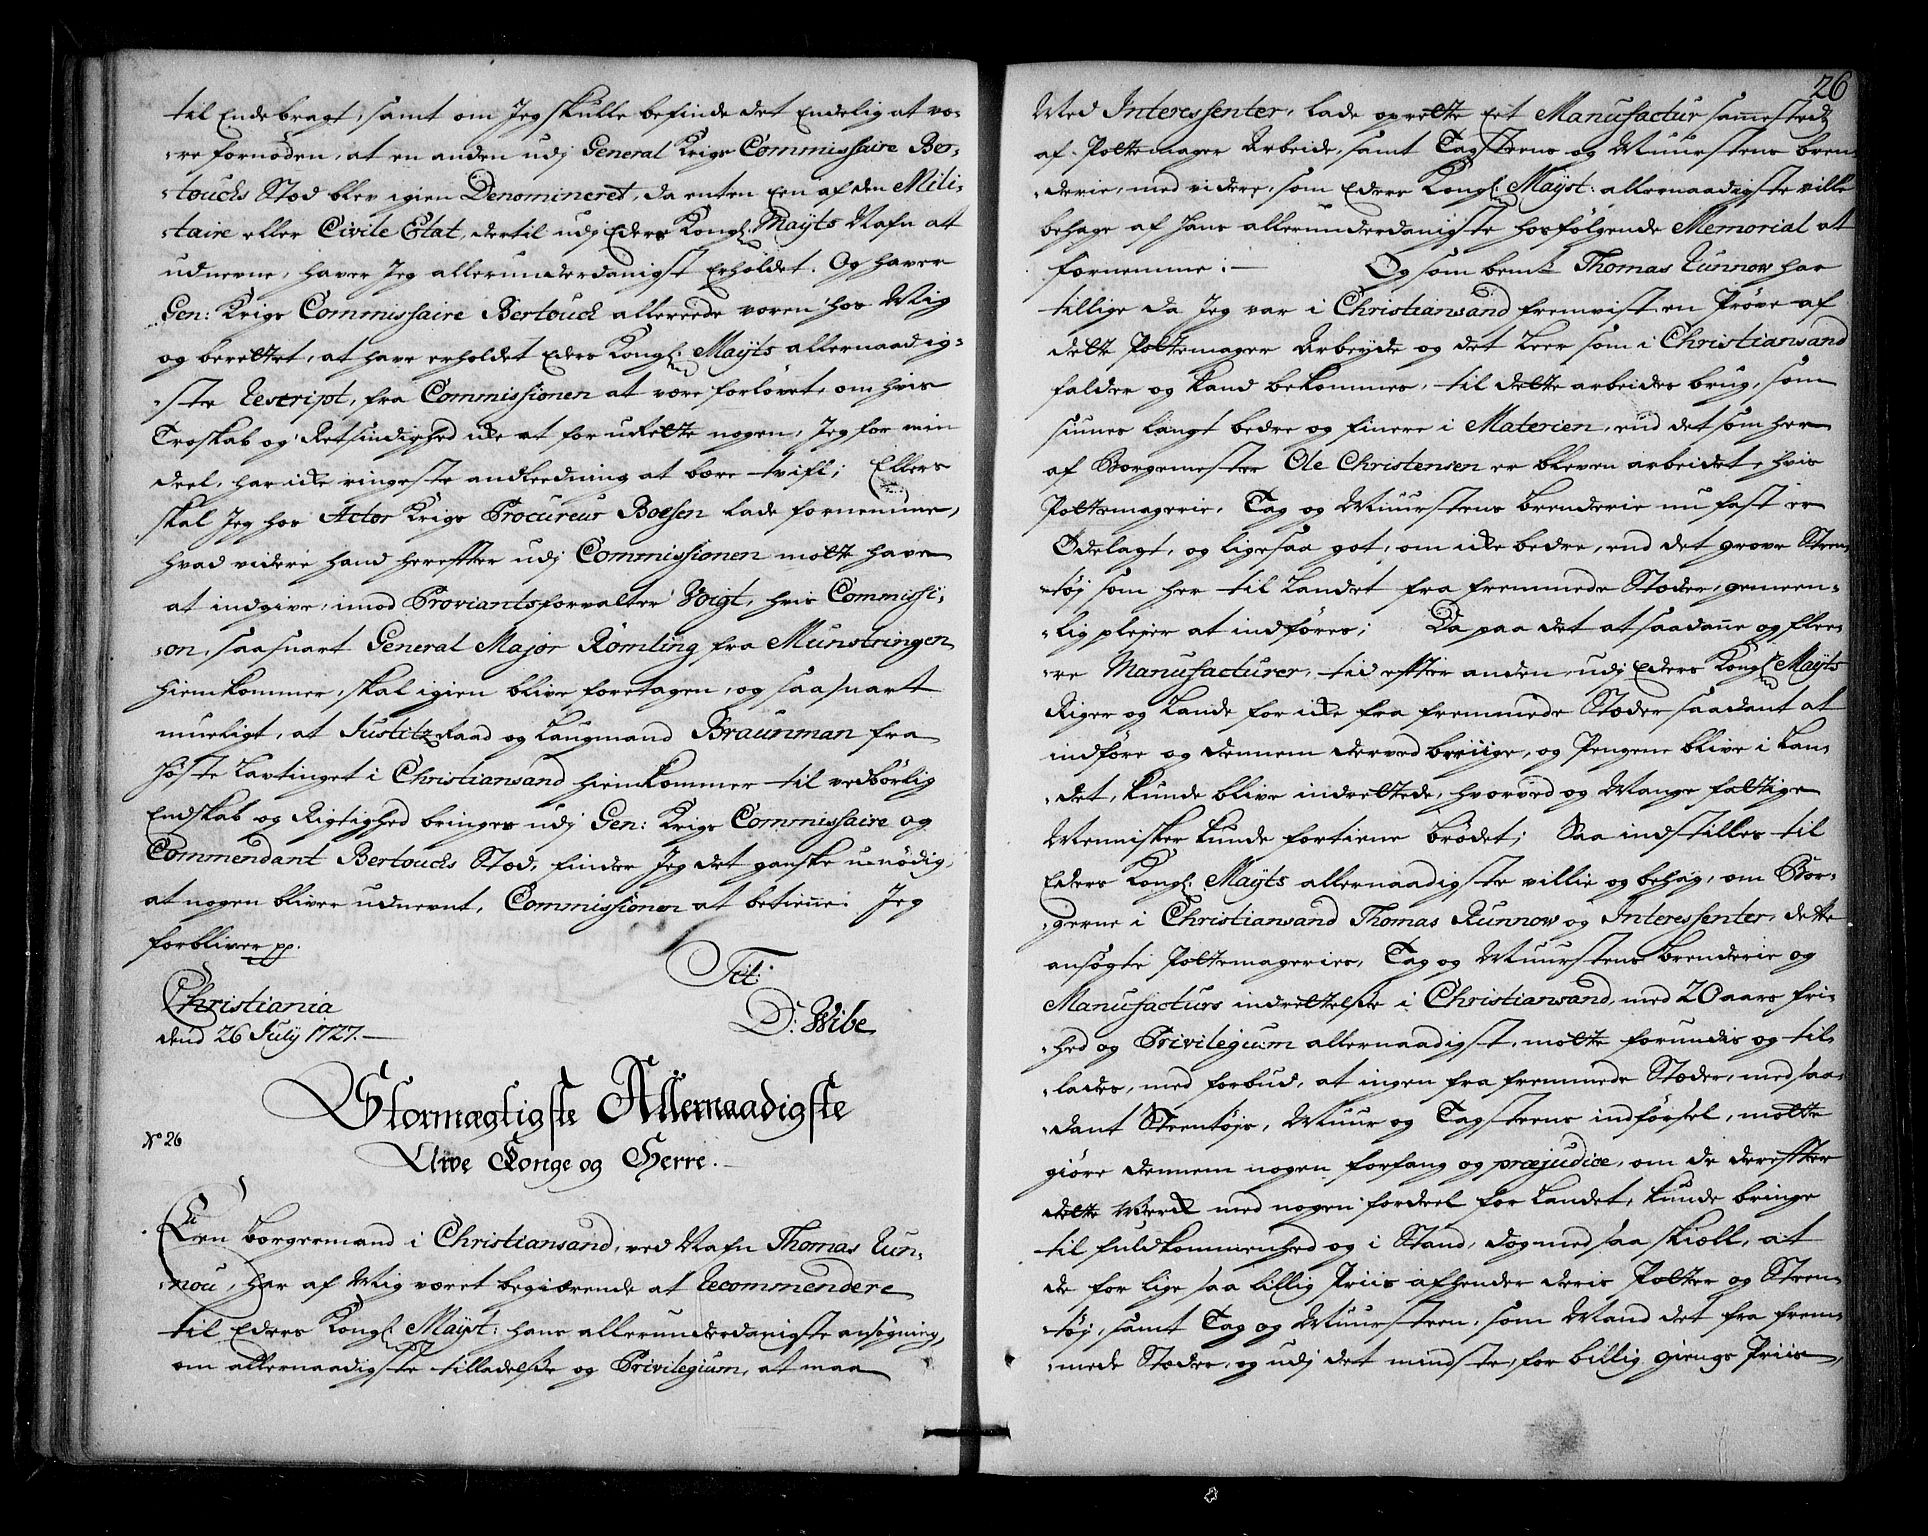 til Endebragt, samt om Jeg skulle befinde det Endelig at væ-
-re fornøden, at en anden udj General Krigs Commissaire Ber-
-touchs Stæd blev igien Denomineret, da enten Een af den Mili-
-taire eller Civile Etat, dertil udj Eders Kongl: Mayts Nafn att
udnevne, haver Jeg allerunderdanigst Erholdet. Og haver
Gen: Krigs Commissaire Bertouch allereede voren hos Mig
og berettet, at have erholdet Eders Kongl: Mayts allernaadig-
-ste Rescript, fra Commissionen at være forløvet, om hvis
Troskab og Retsindighed icke at forurette nogen, Jeg for min
deel, har icke ringeste andleedning at bære tvifl; Ellers
skal Jeg hos Actor Krigs Procureur Boesen lade fornemme,
hvad videre hand herefter udj Commissionen motte have
at indgive, imod Proviantsforvalter Voigt, hvis Commissi-
-on, saasnart General Major Rømling fra Munstringen
hiemkommer, skal igien blive foretagen, og saasnart
mueligt, at Justitz Raad og Laugmand Braunman fra
høste Lavtinget i Christiansand hiemkommer til vedbørlig
Endskab og Rigtighed bringes udj Gen: Krigs Commissaire og
Commendant Bertouchs Stæd, finder Jeg det ganske unødig,
at nogen bliver udnevnt, Commissionen at betiene. Jeg
forbliver pp.
Tit:
Christiania
D: Wibe
dend 26 Julij 1727.
Stormægtigste Allernaadigste
No 26
Arve Konge og Herre.
Een borgermand i Christiansand, ved Nafn Thomas Run-
-nou, har af Mig været begiærende at Recommendere
til Eders Kongl: Mayst: hans allerunderdanigste ansøgning,
om allernaadigste tilladelse og Privilegium, at maa
26
Med Interessenter, lade oprette Eet Manufactur sammesteds
af Pottemager Arbeide, samt Tagsteens og Muurstens bren-
-derie, med videre, som Eders Kongl: Mayst: allernaadigste ville
behage af hans allerunderdanigste hosfølgende Memorial at
fornemme: Og som bemte Thomas Runnow har
tillige da Jeg var i Christiansand fremvist en Prøve af
dette Pottemager Arbeyde og det Leer som i Christiansand
falder og kand bekommes, til dette arbeides brug, som
siunes langt bedre og finere i Materien, end det som her
af Borgemester Ole Christensen er bleven arbeidet, hvis
Pottemagerie, Tag og Muurstens brenderie nu fast er
Ødelagt, og ligesaa got, om icke bedre, end det grove Steen-
-tøj som her til Landet fra fremmede Stæder, gemeen-
-lig plejer at indføres; Da paa det at saadanne og flee-
-re Manufacturer, tid efter anden, udj Eders Kongl: Mayts
Riger og Lande for icke fra fremmede Stæder saadant at
indføre og dennem derved beriige, og Pengene blive i Lan-
-det, kunde blive indrettede, hvorved og Mange fattige
Mennisker kunde fortiene brødet; Saa indstilles til
Eders Kongl: Mayts allernaadigste villie og behag, om Bor-
-gerne i Christiansand Thomas Runnow og Interessenter, dette
ansøgte Pottemageries, Tag og Muurstens brenderie og
Manufacturs indrettelse i Christiansand, med 20 aars fri-
-hed og Privilegium allernaadigst, motte forundis og til-
-lades, med forbud, at ingen fra fremmede Stæder, med saa-
-dant Steentøjs, Muur og Tagsteens indførsel, motte
giøre dennem nogen forfang og præjudice, om de derefter
dette Werck med nogen fordeel for Landet, kunde bringe
til fuldkommenhed og i Stand, dog med saa skiell, at
de for lige saa billig Priis afhender deris Potter og Steen-
-tøj, samt Tag og Muursteen, som Mand det fra frem-
-mede Stæder, og udj det mindste, for billig giengs Priis,